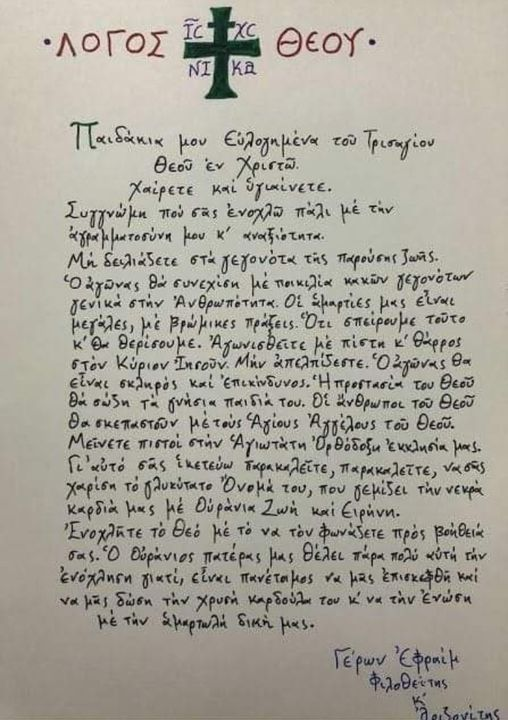 ·ΛΟΓΟΣ ΙC XC ΘΕΟΥ·
ΝΙ ΚΑ
Παιδάκια μου Εὐλογημένα τοῦ Τρισαγίου
Θεοῦ ἐν Χριστῶ.
Χαίρετε καί ὑγιαίνετε.
Συγγνώμη πού σᾶς ἐνοχλῶ πάλι μέ τήν
ἀγραμματοσύνη μου κ' ἀναξιότητα.
Μή δειλιάζετε στά γεγονότα τῆς παρούσης ζωῆς.
Ὁ ἀγῶνας θά συνεχίση μέ ποικιλία κακῶν γεγονότων
γενικά στήν Ἀνθρωπότητα. Οἱ ἁμαρτίες μας εἶναι
μεγάλες, μέ βρώμικες πράξεις. Ὅτι σπείρουμε τοῦτο
κ' θα θερίσουμε. Ἀγωνισθεῖτε μέ πίστη κ' θάρρος
στόν Κύριον Ἰησοῦν. Μήν ἀπελπίζεστε. Ὁ ἀγῶνας θα
εἶναι σκληρός καί ἐπικίνδυνος. Ἡ προστασία του Θεοῦ
θά σώξη τά γνήσια παιδιά του. Οἱ ἄνθρωποι τοῦ Θεοῦ
θα σκεπαστοῦν μέ τούς Ἁγίους Ἀγγέλους τοῦ Θεοῦ.
Μείνετε πιστοί στήν Ἁγιωτάτη Ὀρθόδοξη ἐκκλησία μας.
Γι' αὐτό σᾶς ἱκετεύω παρακαλεῖτε, παρακαλεῖτε, να σᾶς
χαρίση τό γλυκύτατο Ὄνομά του, πού γεμίζει τήν νεκρά
καρδιά μας μέ Οὐράνια Ζωή καί Εἰρήνη.
Ἐνοχλῆτε τό Θεό μέ τό να τόν φωνάζετε πρός βοήθειά
σας. Ὁ Οὐράνιος πατέρας μας θέλει πάρα πολύ αὐτή τήν
ἐνόχληση γιατί, εἶναι πανέτοιμος να μᾶς ἐπισκεφθῆ καί
να μᾶς δώση τήν χρυσή καρδούλα του κ' να τήν ἑνώση
μέ τήν ἁμαρτωλή δική μας.
Γέρων Ἐφραίμ
Φιλοθεΐτης
κ'
Ἀριζονίτης